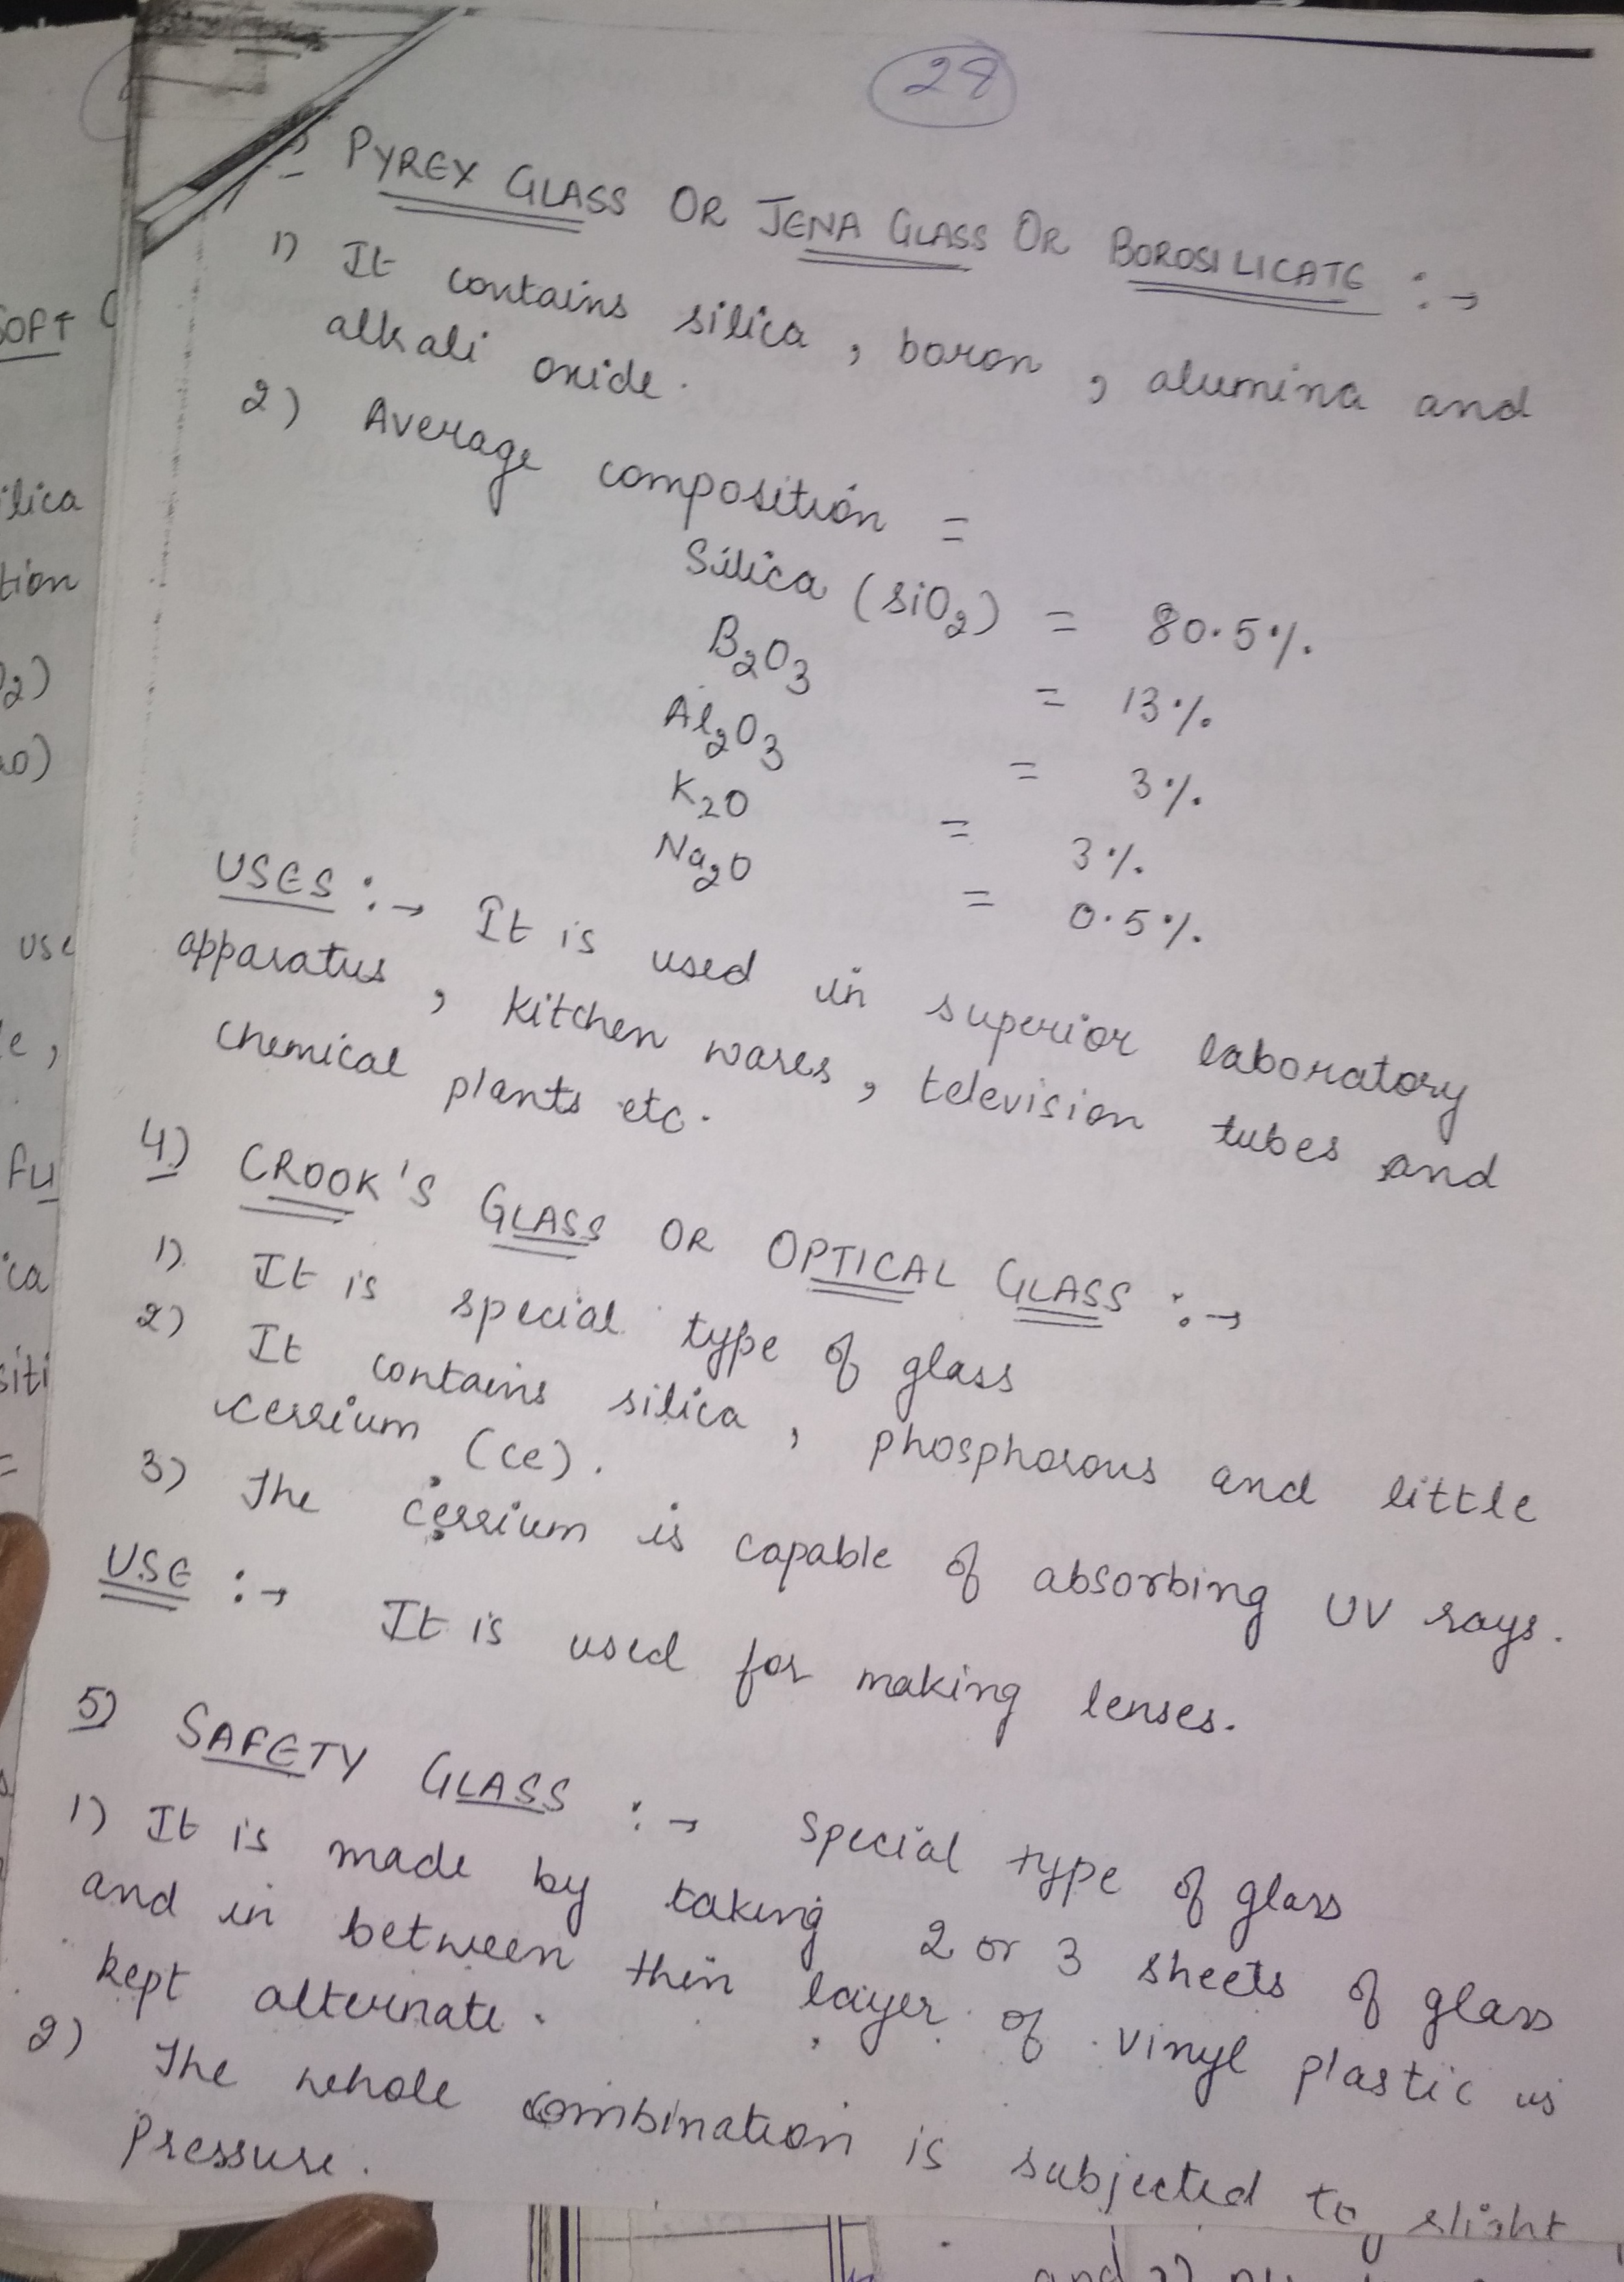 28
PYREX GLASS OR JENA GLASS OR BOROSILICATE :→
1) It contains silica, boron, alumina and
alkali oxide.
2) Average composition =
Silica (SiO2) = 80.5%.
B2O3 = 13%.
Al2O3 = 3%.
K2O = 3%.
Na2O = 0.5%.
USES :→ It is used in superior laboratory
apparatus, kitchen wares, television tubes and
chemical plants etc.
4) CROOK'S GLASS OR OPTICAL GLASS :→
1) It is special type of glass
2) It contains silica, phosphorous and little
cerrium (Ce).
3) The cerrium is capable of absorbing UV rays.
USE :→ It is used for making lenses.
5) SAFETY GLASS :→ Special type of glass
1) It is made by taking 2 or 3 sheets of glass
and in between thin layer of vinyl plastic is
kept alternate.
2) The whole combination is subjected to slight
pressure.
SOFT
ilica
tion
O2)
use
fu
ica
siti
and